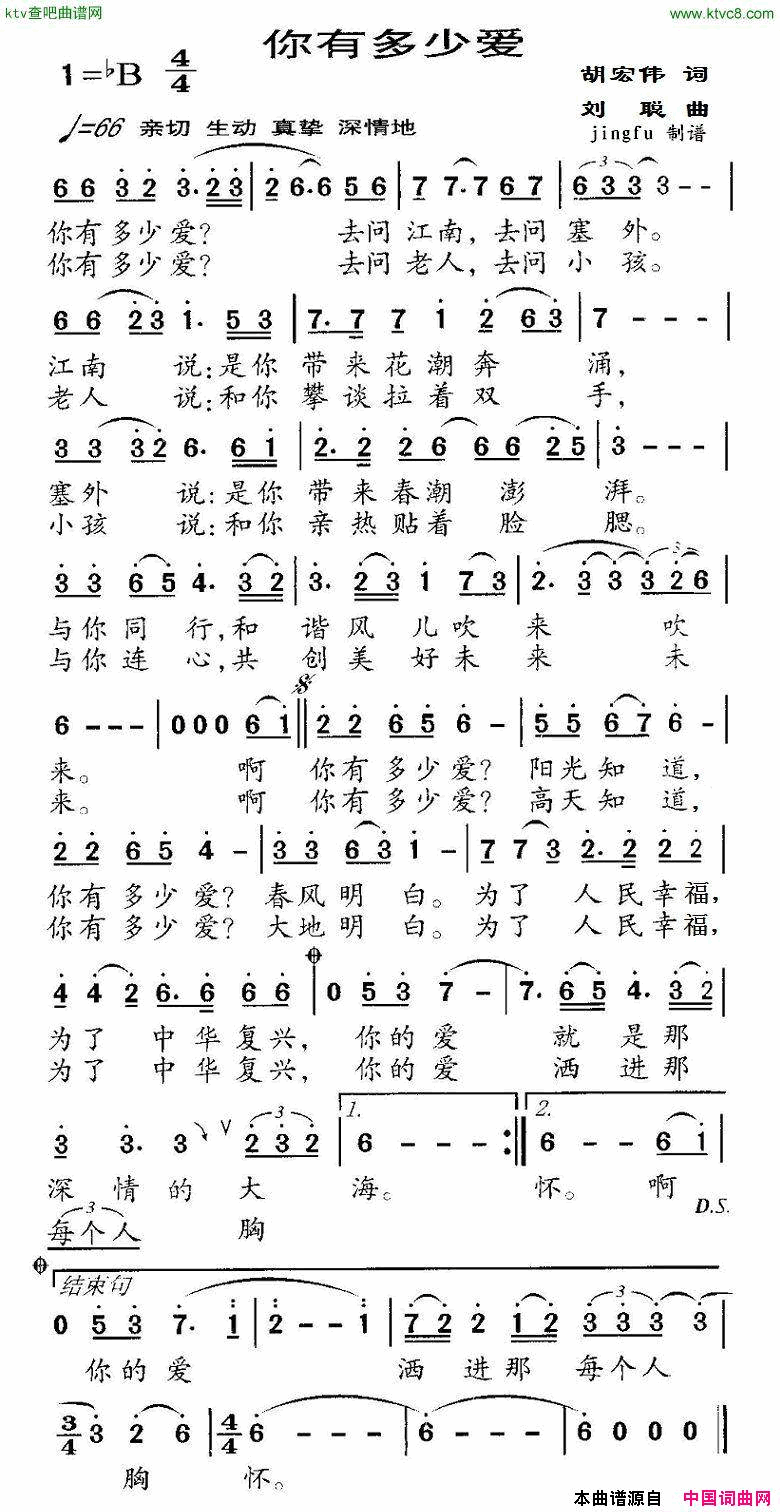 ktv查吧曲谱网
www.ktvc8.com
你有多少爱
1=♭B 4/4
胡宏伟 词
刘 聪 曲
♩=66 亲切 生动 真挚 深情地
jingfu 制谱
6 6 3 2 3. 2 3 | 2 6. 6 5 6 | 7 7. 7 6 7 | 6 3 3 3 - - |
你有多少爱? 去问江南,去问塞 外。
你有多少爱? 去问老人,去问小 孩。
6 6 2 3 1. 5 3 | 7. 7 7 1 2 6 3 | 7 - - - |
江南 说:是你 带来花潮奔 涌,
老人 说:和你 攀谈拉着双 手,
3 3 3 2 6. 6 1 | 2. 2 2 6 6 6 2 5 | 3 - - - |
塞外 说:是你 带来春潮 澎 湃。
小孩 说:和你 亲热贴着 脸 腮。
3 3 6 5 4. 3 2 | 3. 2 3 1 7 3 | 2. 3 3 3 2 6 |
与你同 行,和 谐风 儿吹 来 吹
与你连 心,共 创美 好未 来 未
6 - - - | 0 0 0 6 1 | 2 2 6 5 6 - | 5 5 6 7 6 - |
来。 啊 你有多少爱? 阳光知 道,
来。 啊 你有多少爱? 高天知 道,
2 2 6 5 4 - | 3 3 6 3 1 - | 7 7 3 2. 2 2 2 |
你有多少爱? 春风明 白。为了 人民幸福,
你有多少爱? 大地明 白。为了 人民幸福,
4 4 2 6. 6 6 6 | 0 5 3 7 - | 7. 6 5 4. 3 2 |
为了 中华复兴, 你的爱 就是那
为了 中华复兴, 你的爱 洒进那
3 3. 3 2 3 2 | 1. 6 - - - :| 2. 6 - - 6 1 |
深 情的大 海。 怀。 啊
D.S.
每个人 胸
结束句
0 5 3 7. 1 | 2 - - 1 | 7 2 2 1 2 3 3 3 3 |
你的爱 洒 进那 每个人
3/4 3 2 6 | 4/4 6 - - - | 6 - - - | 6 0 0 0 ||
胸 怀。
本曲谱源自 中国词曲网